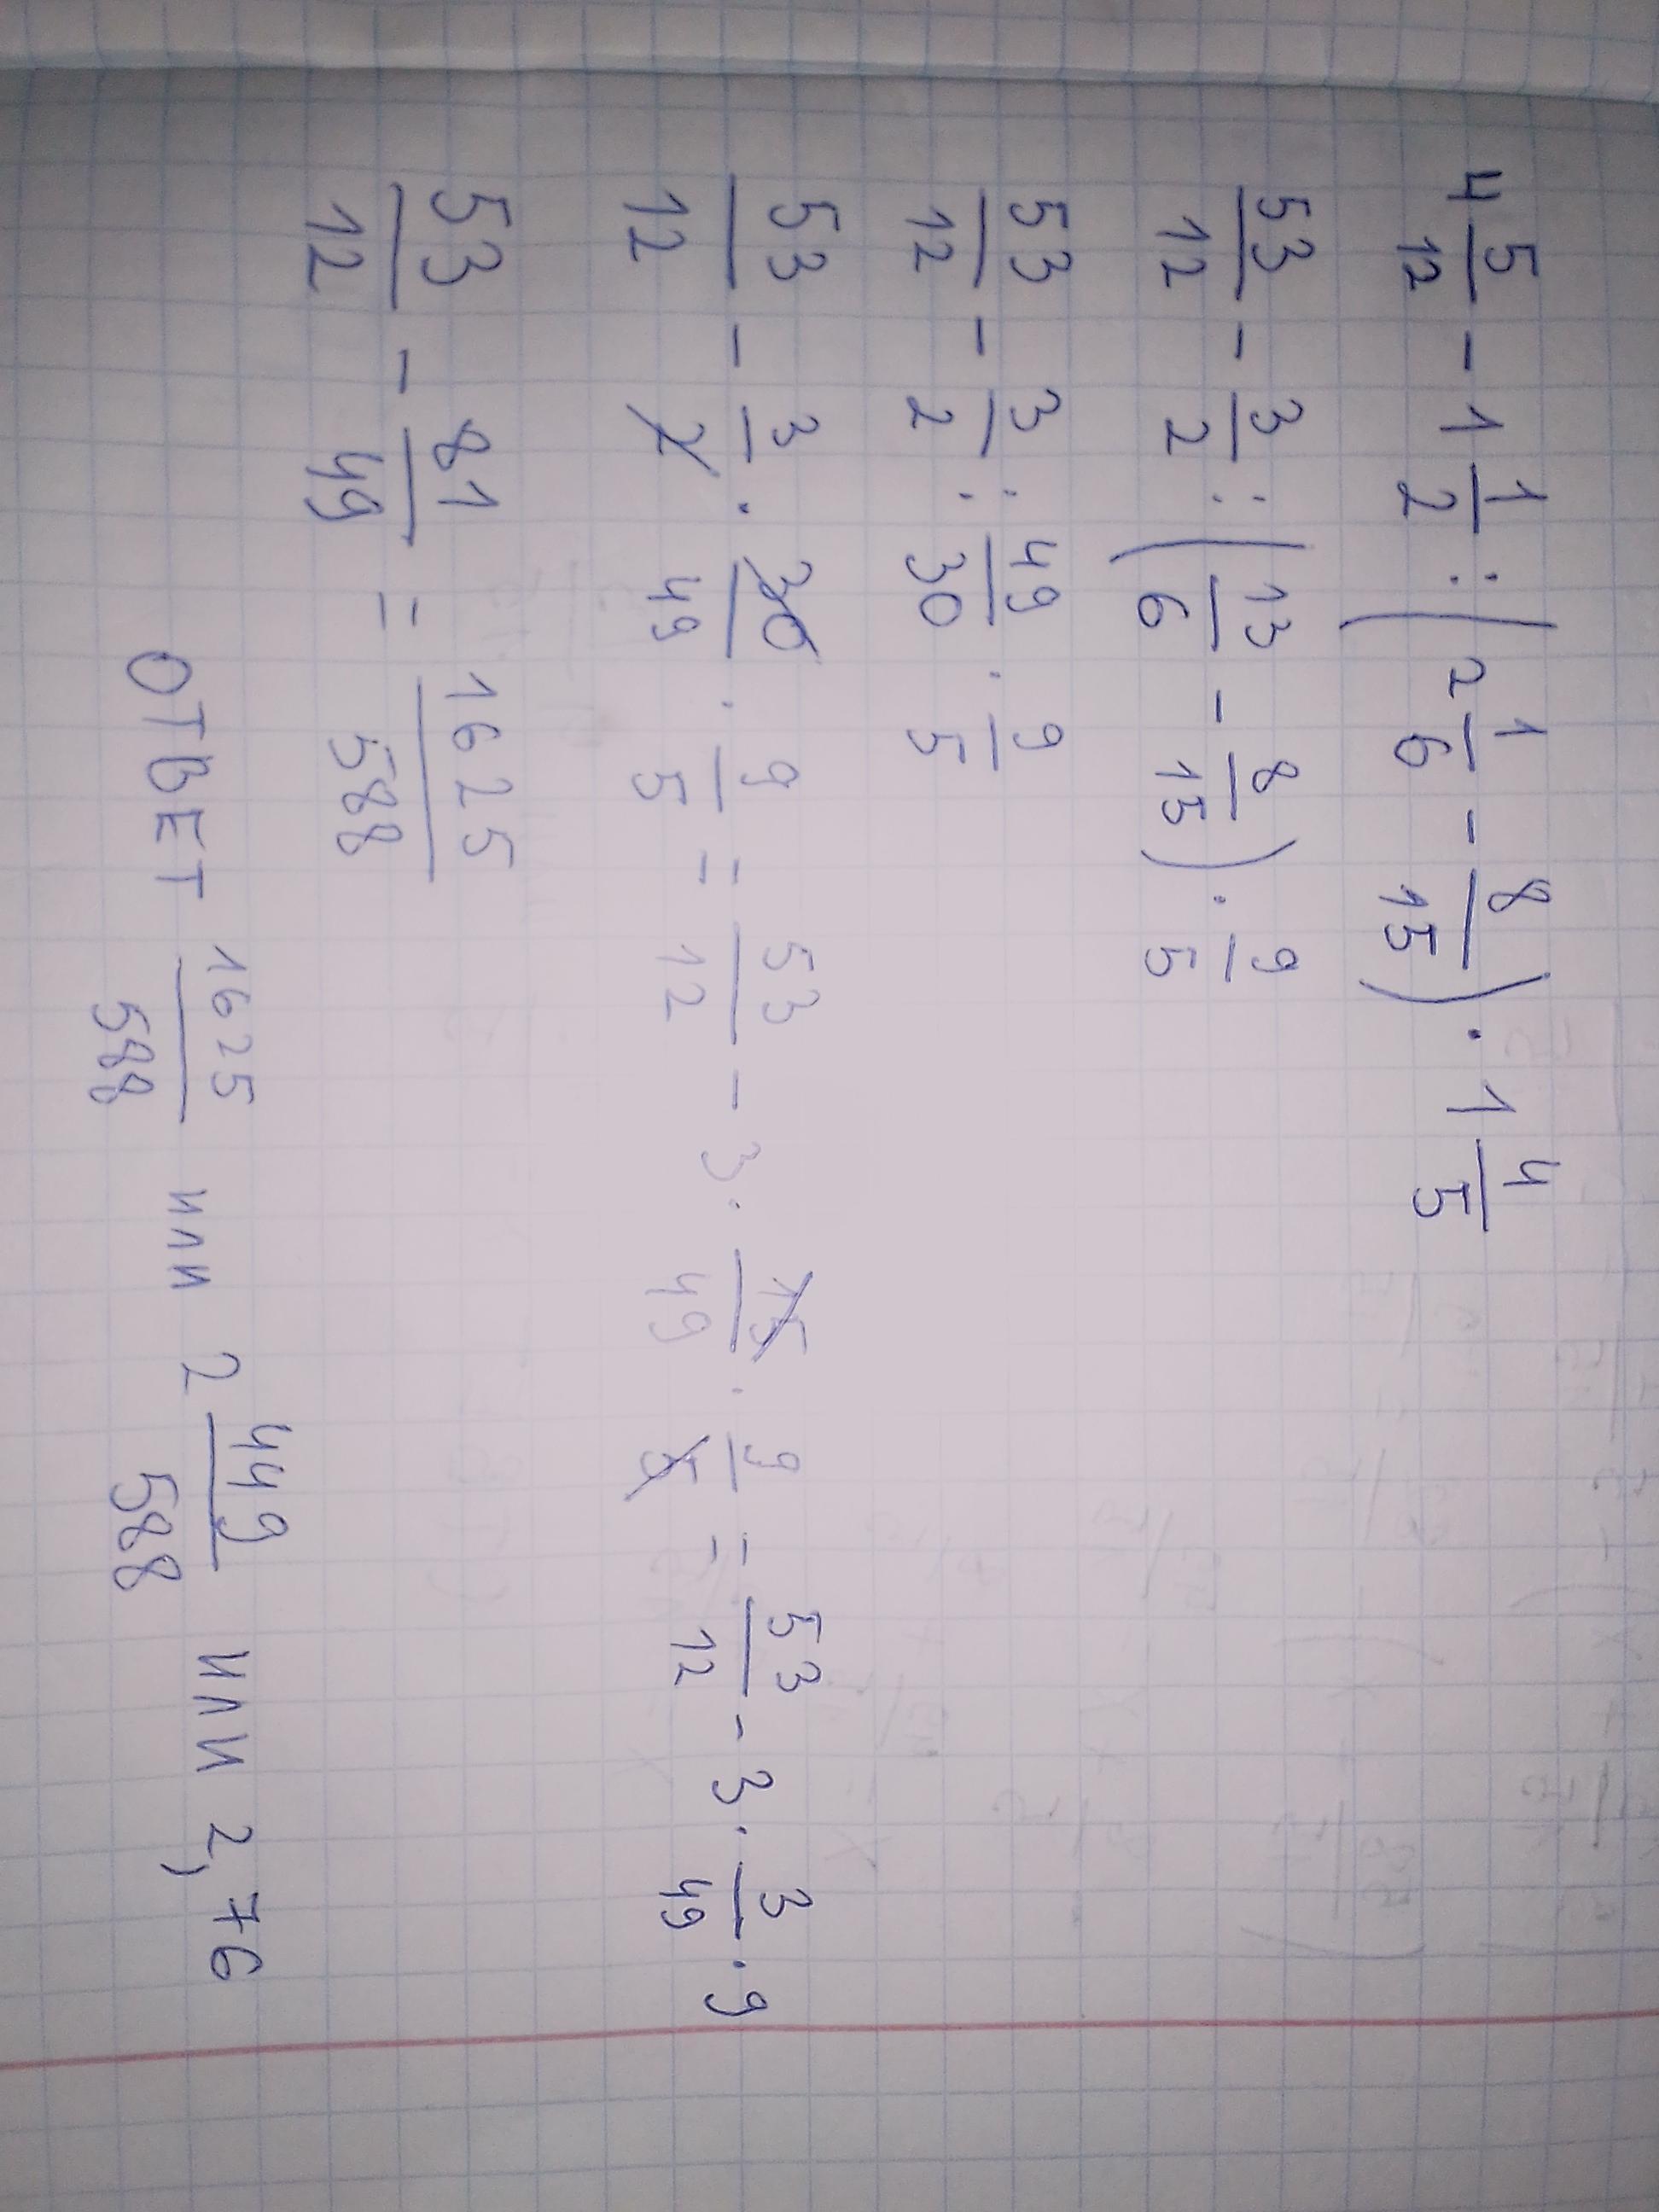 4 5/12 - 1 1/2 : (2 1/6 - 8/15) · 1 4/5
53/12 - 3/2 : (13/6 - 8/15) · 9/5
53/12 - 3/2 : 49/30 · 9/5
53/12 - 3/2 · 30/49 · 9/5 = 53/12 - 3 · 15/49 · 9/5 = 53/12 - 3 · 3/49 · 9
53/12 - 81/49 = 1625/588
ОТВЕТ 1625/588 или 2 449/588 или 2,76